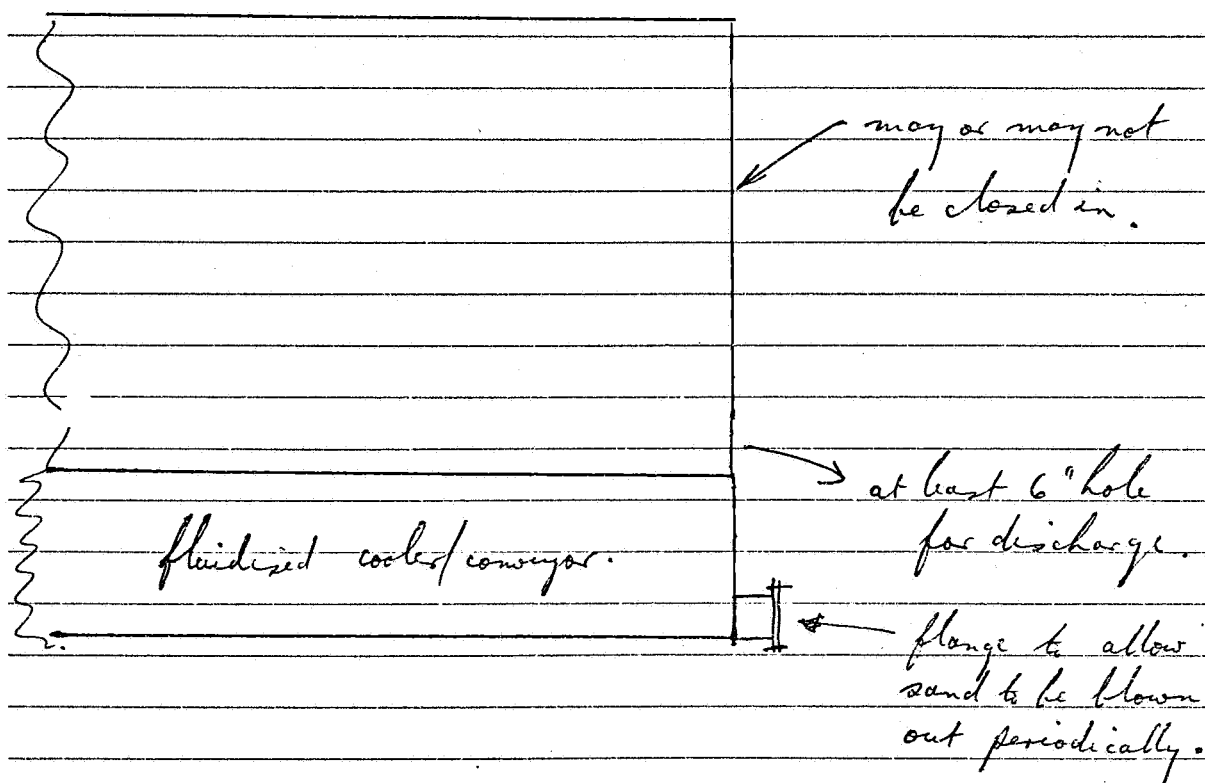 may or may not
be closed in.
at least 6" hole
for discharge.
fluidised cooler/conveyor.
flange to allow
sand to be blown
out periodically.